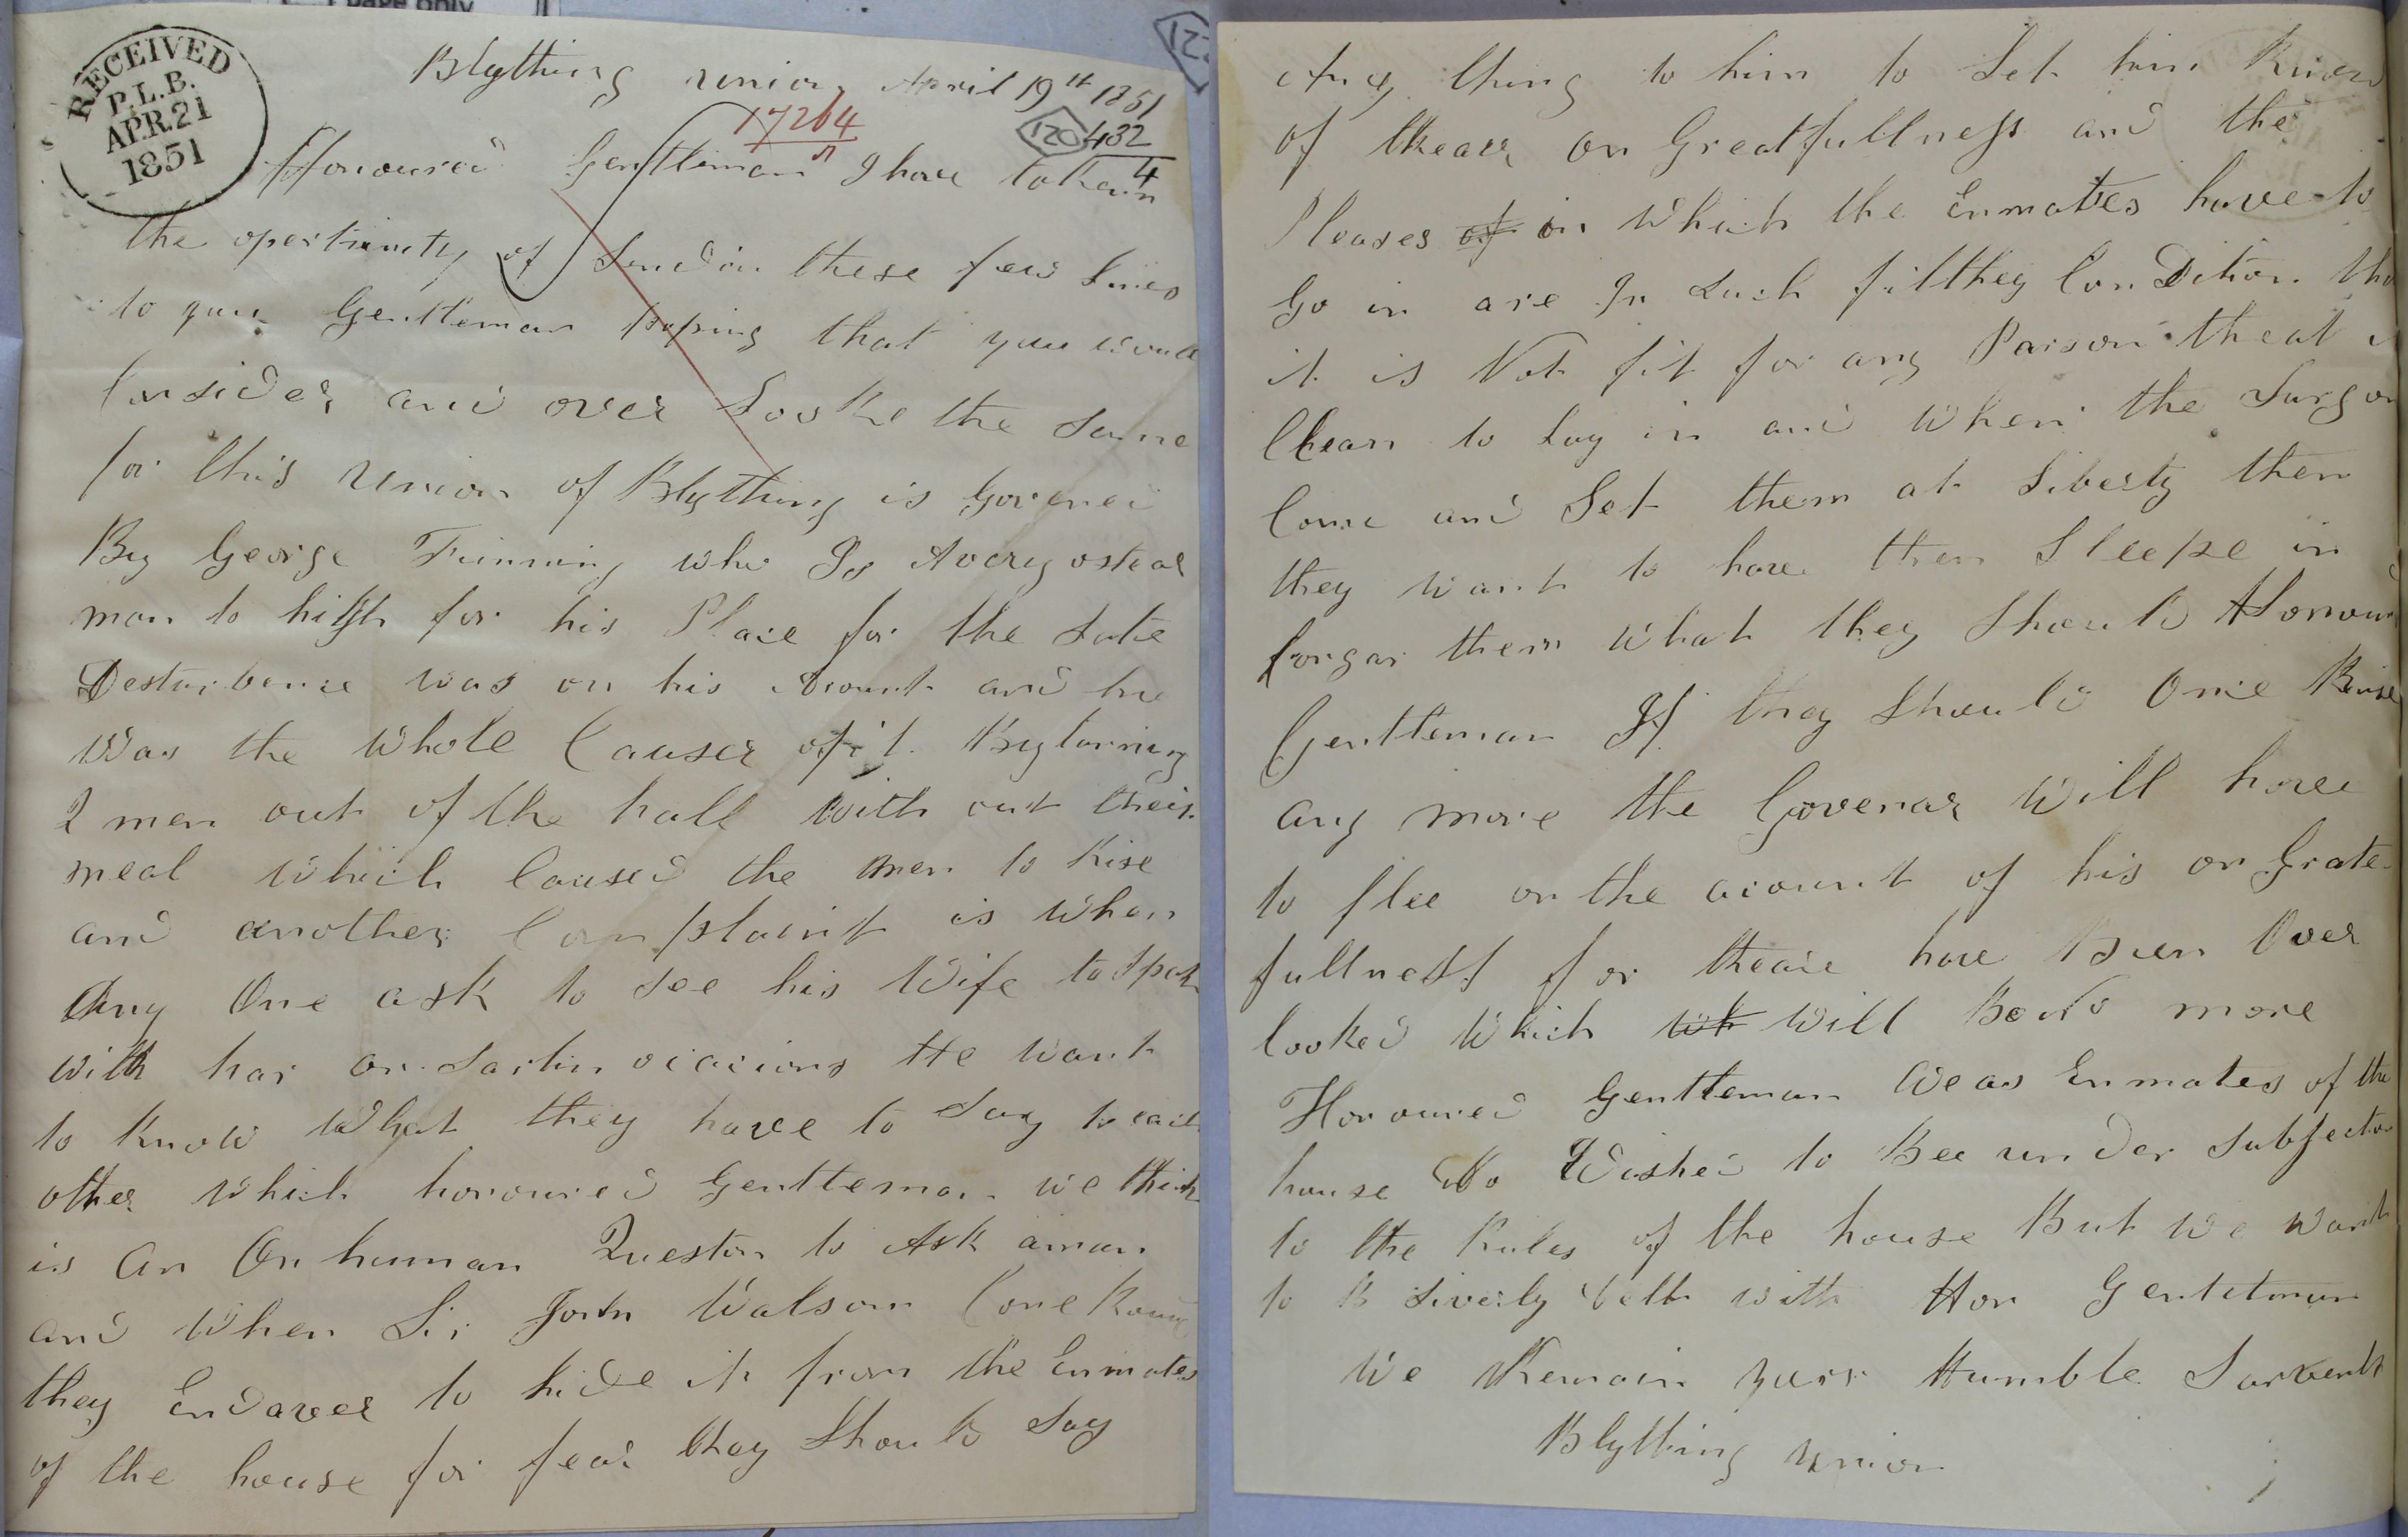 page only
RECEIVED
P.L.B.
APR. 21
1851
Blything union April 19th 1851
17264
120 432
4
Honoured Gentleman I have taken
the opertunity of Sendin these few Lines
to you Gentleman hoping that you would
Consider and over Looke the Same
for this union of Blything is Govened
By George Finning who Is Avery osteas
man to high for his Place for the Late
Desturbance was on his Acount and he
Was the Whole Causer of it By turning
2 men out of the hall with out their
meal Which Caused the men to Rise
and another Complaint is When
Any One ask to See his Wife to Spak
with har on Sartin ocacions He want
to know What they have to Say to each
other Which honoured Gentleman we think
is An On human Question to Ask a man
and When Sir John Walsam Come Round
they Endaver to hide it from the Enmates
of the house for fear they Should Say
Any thing to him to Let him Know
of theair on Greatfullness and the
Plases of in Which the Enmates have to
Go in are In Such filthey Con Dition tha
it is Not fit for any Parson theat is
Clean to Lay in and When the Surgon
Come and Set them at Liberty then
they want to have them Sleepe in
Congar them What they Should Honoured
Gentleman If they Should Once Rise
any more the Govenar Will have
to flee on the acount of his on Grate
fullness for theare have Been Over
looked Which wh Will Be No more
Honoured Gentleman We as Enmates of the
house Do Wished to Bee under Subjection
to the Rules of the house But we want
to B Siverly Delt with Hon Gentetman
We Remain your Humble Sarvents
Blything Union